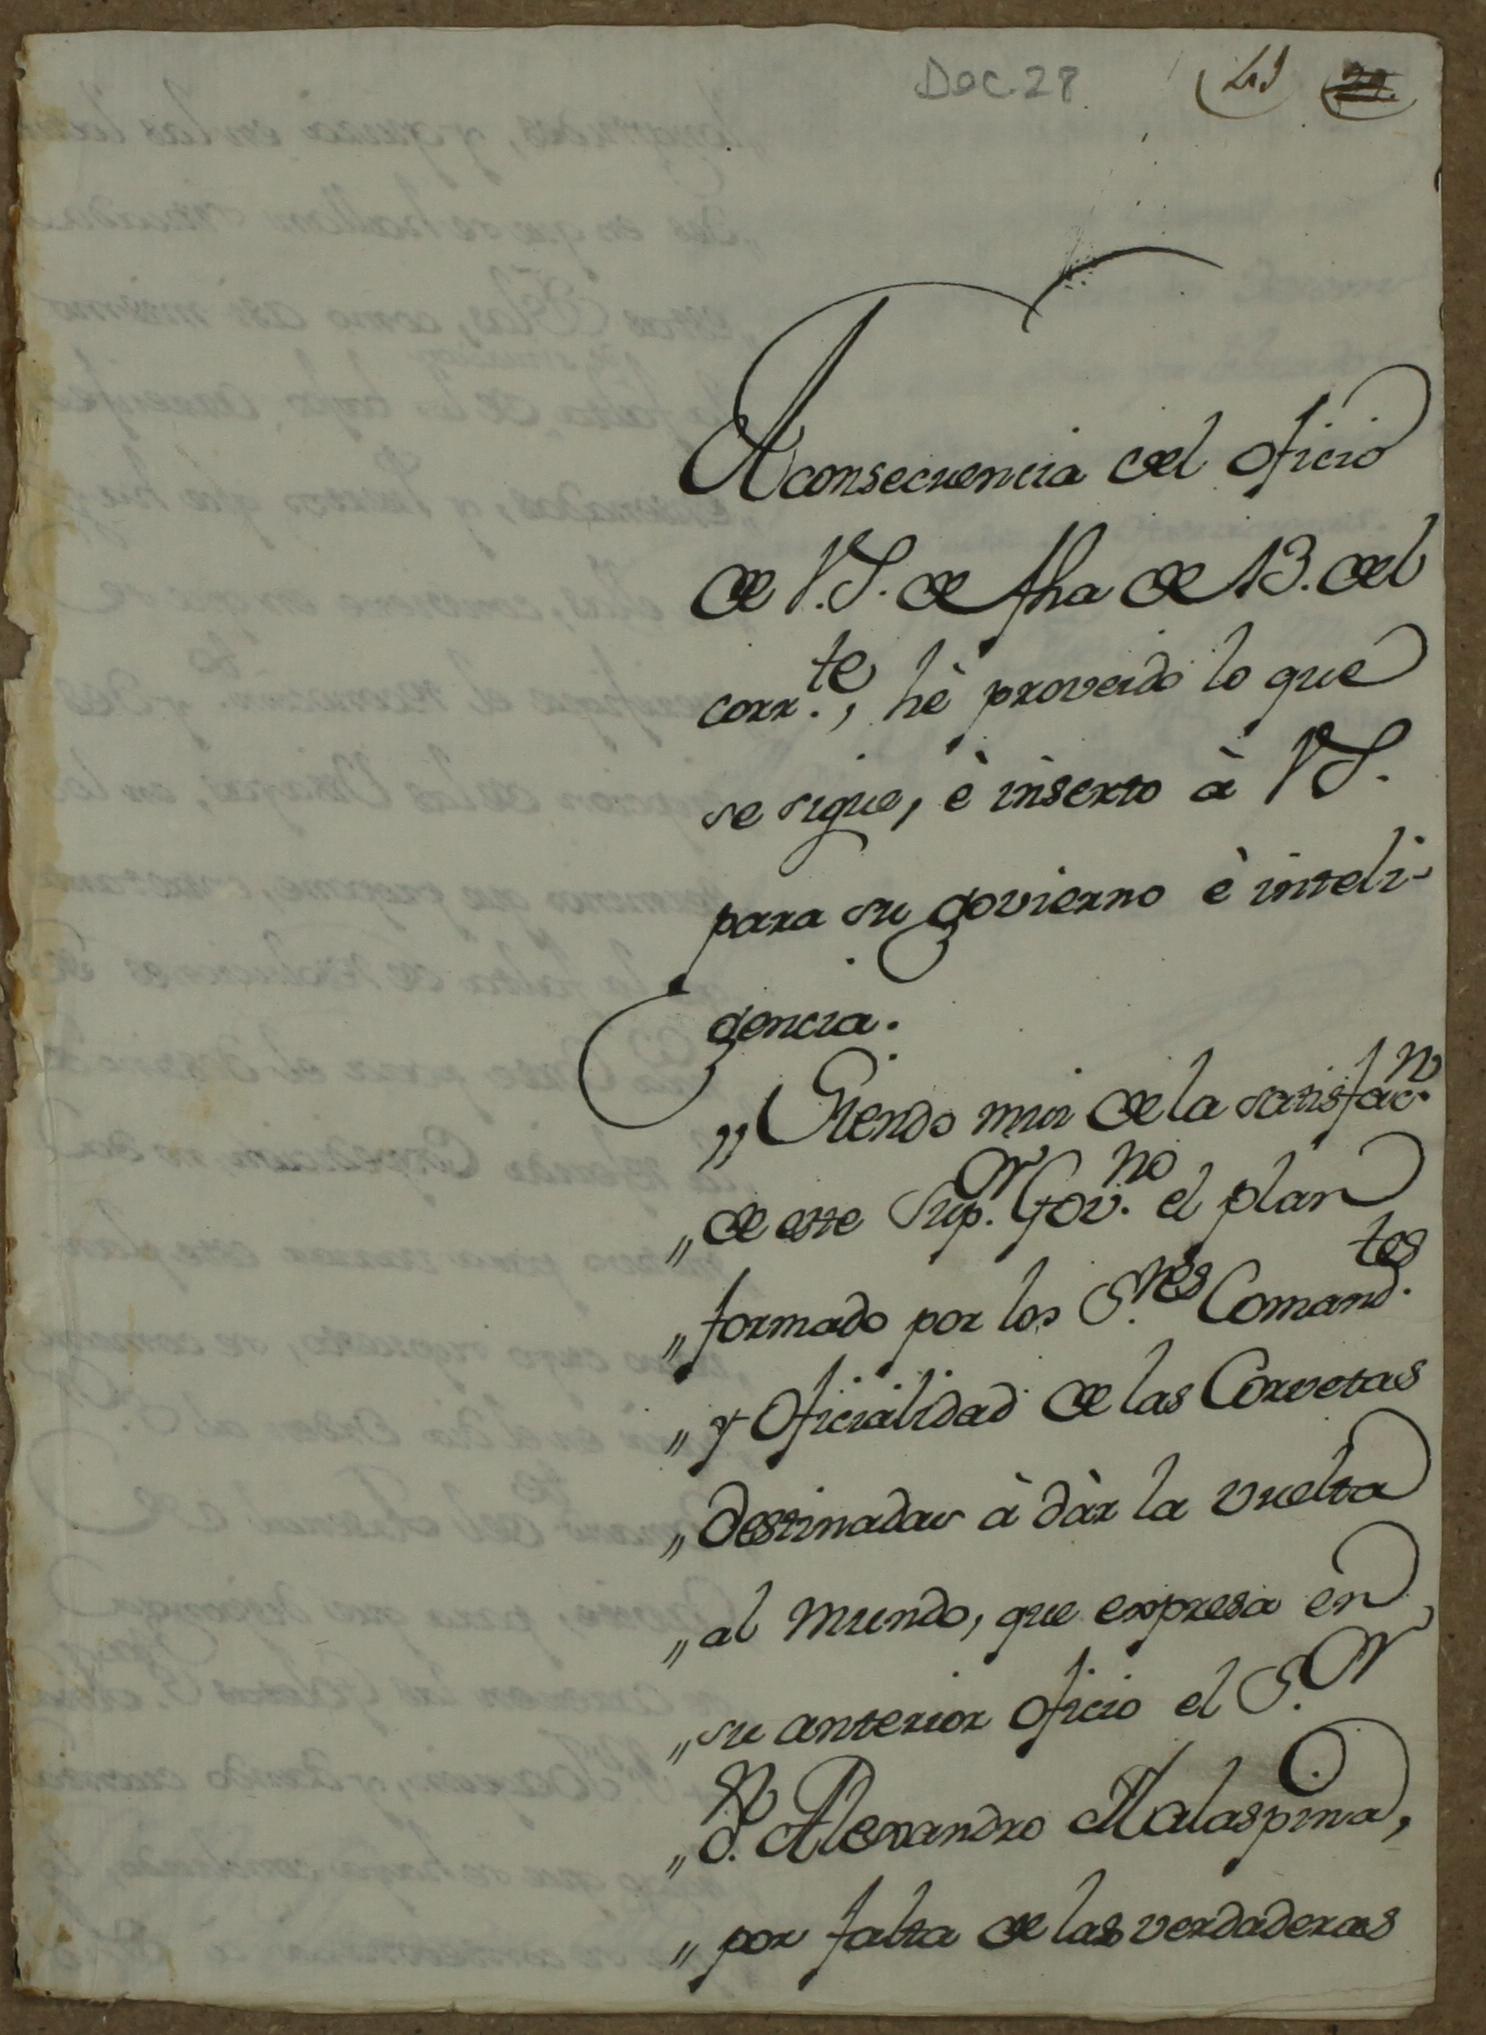 Doc. 28
A consecuencia del oficio
de V.S. de fha de 13. del
corr.te, hè proveido lo que
se sigue, è inserto à VS.
para su govierno è inteli-
gencia.
„ Siendo mui de la satisfac.n
„ de este Sup.or Gov.no el plan
„ formado por los S.res Comand.tes
„ y Oficialidad de las Corvetas
„ destinadas à dàr la vuelta
„ al mundo, que expresa en
„ su anterior oficio el S.or
„ D.n Alexandro Malaspina,
„ por falta de las verdaderas